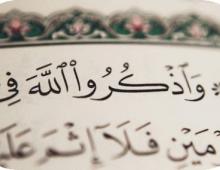 وَٱذْكُرُوا۟ ٱللَّهَ فِىٓ
مَيْنِ فَلَآ إِثْمَ عَلَيْ